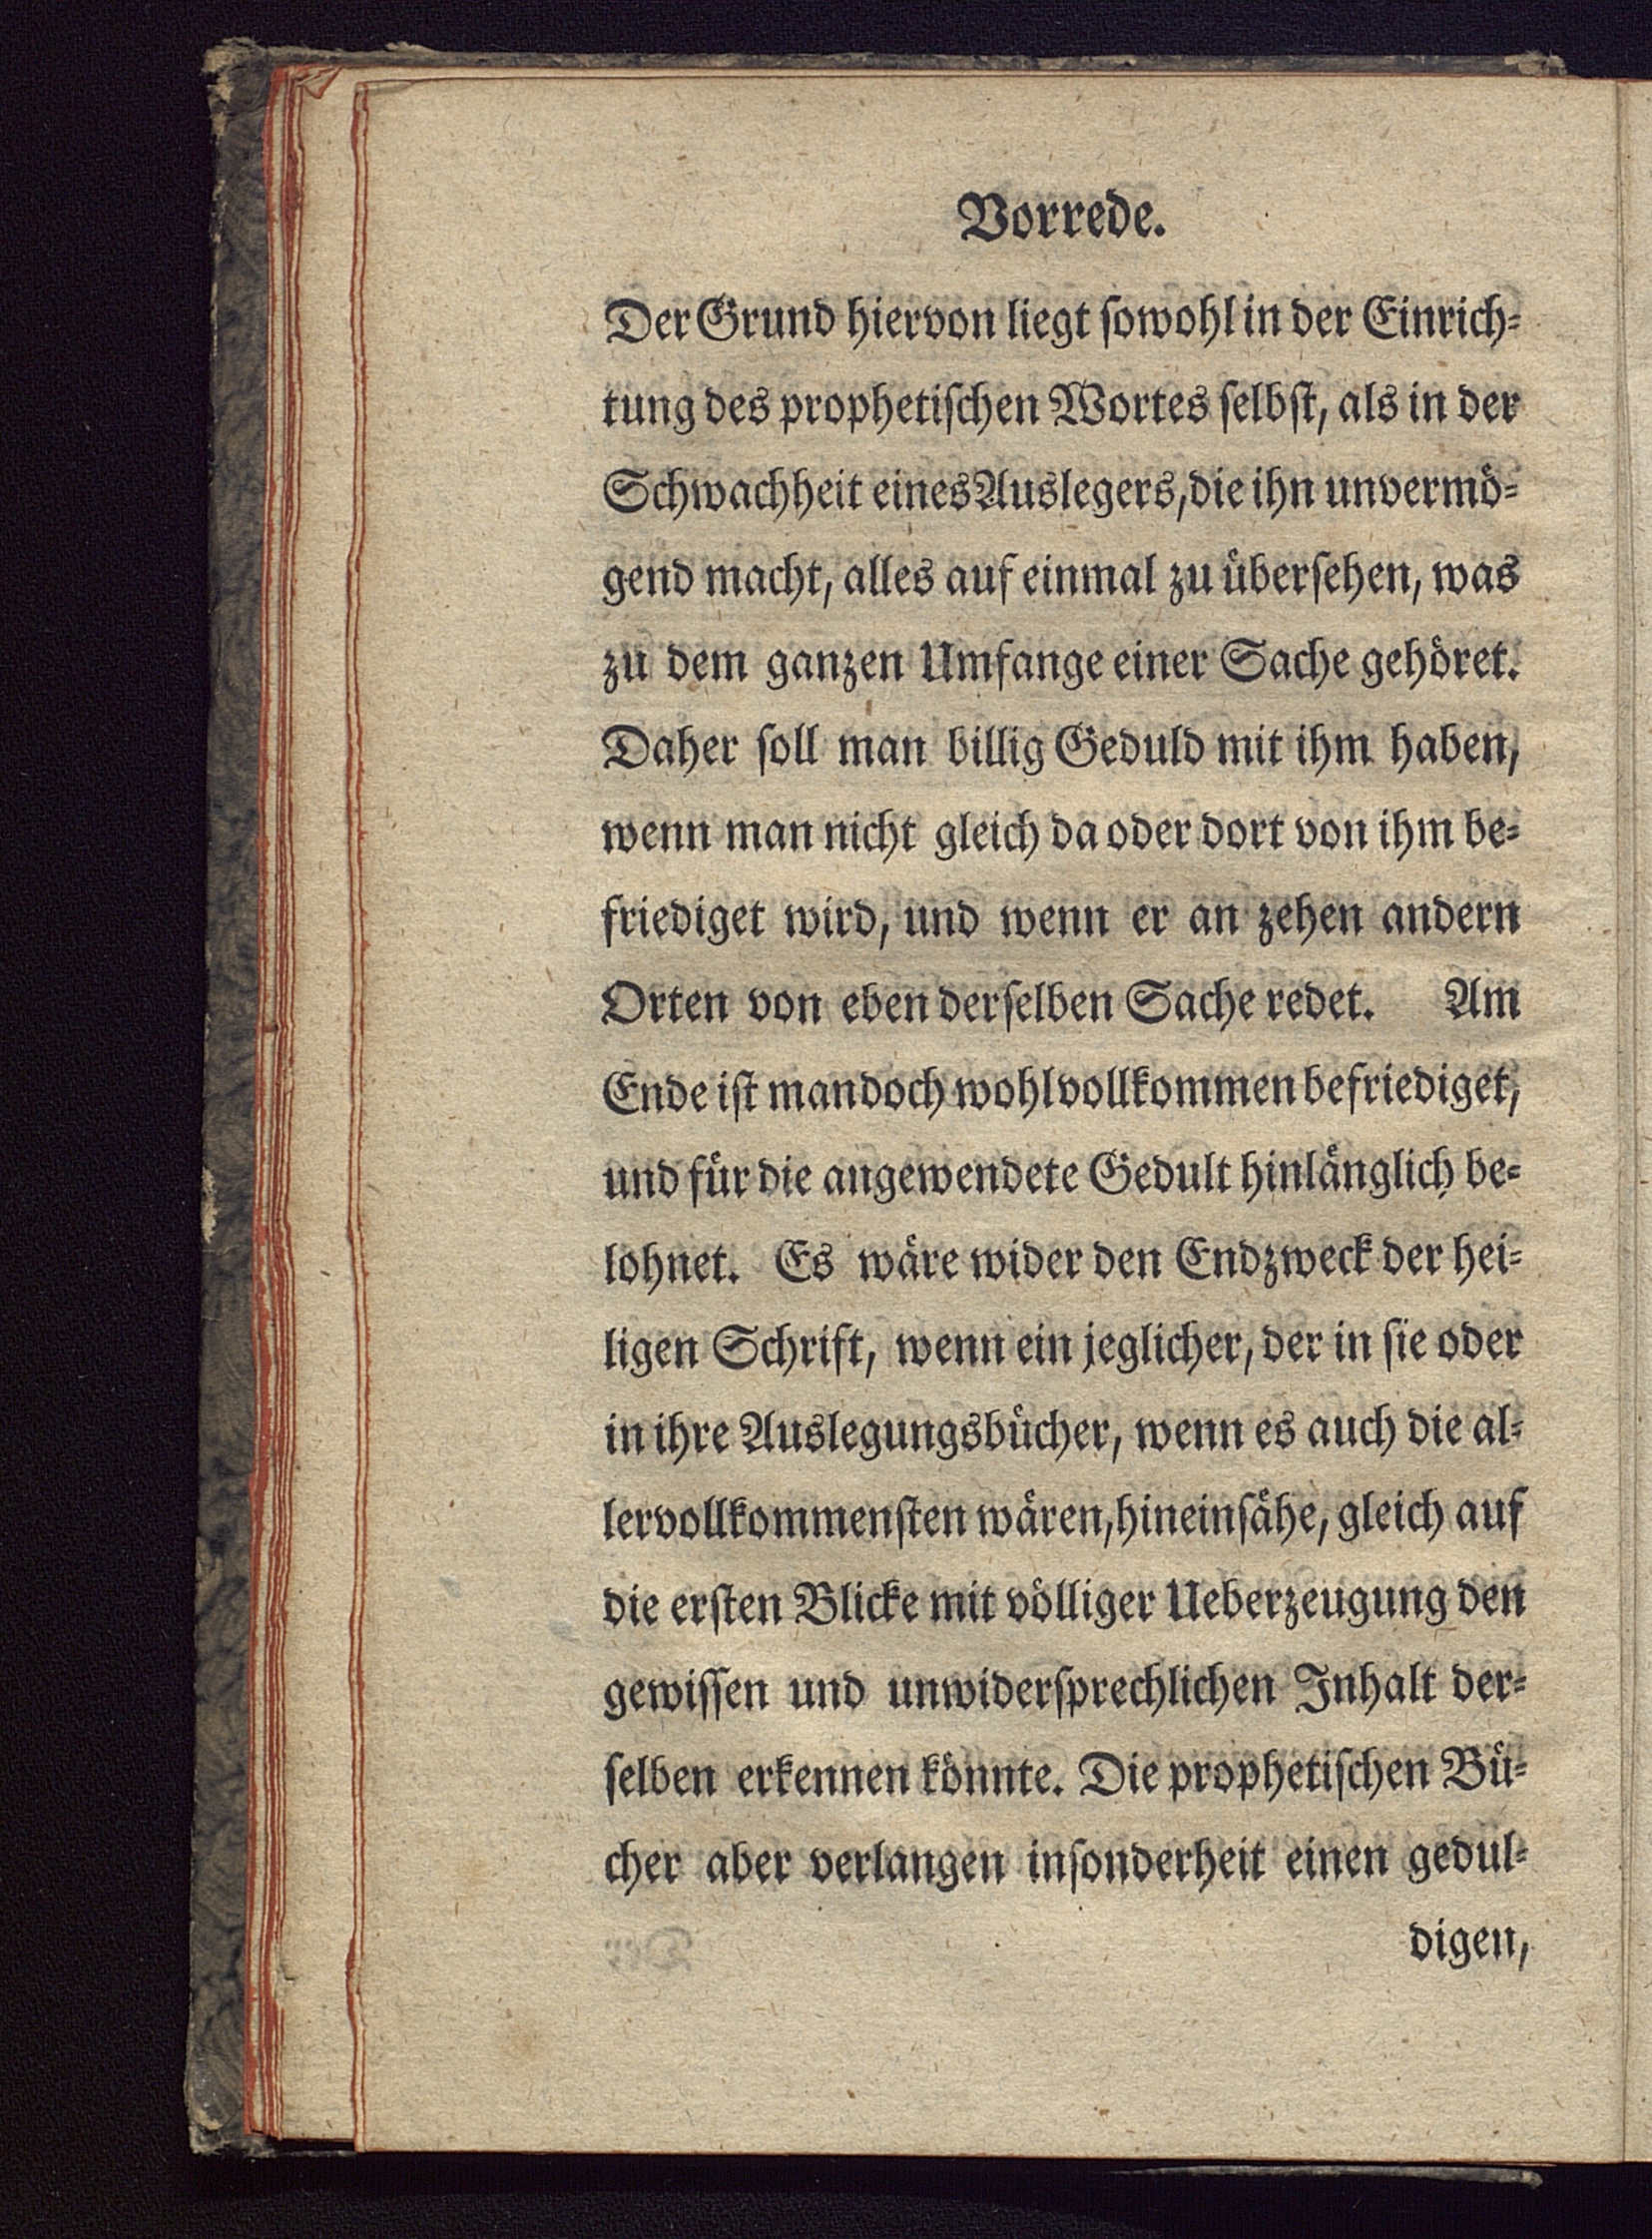 Vorrede.
Der Grund hiervon liegt ſowohl in der Einrich⸗
tung des prophetiſchen Wortes ſelbſt, als in der
Schwachheit eines Auslegers, die ihn unvermoͤ⸗
gend macht, alles auf einmal zu uͤberſehen, was
zu dem ganzen Umfange einer Sache gehoͤret.
Daher ſoll man billig Geduld mit ihm haben,
wenn man nicht gleich da oder dort von ihm be⸗
friediget wird, und wenn er an zehen andern
Orten von eben derſelben Sache redet. Am
Ende iſt man doch wohl vollkommen befriediget,
und fuͤr die angewendete Gedult hinlaͤnglich be⸗
lohnet. Es waͤre wider den Endzweck der hei⸗
ligen Schrift, wenn ein jeglicher, der in ſie oder
in ihre Auslegungsbuͤcher, wenn es auch die al⸗
lervollkommenſten waͤren, hineinſaͤhe, gleich auf
die erſten Blicke mit voͤlliger Ueberzeugung den
gewiſſen und unwiderſprechlichen Inhalt der⸗
ſelben erkennen koͤnnte. Die prophetiſchen Buͤ⸗
cher aber verlangen inſonderheit einen gedul⸗
digen,